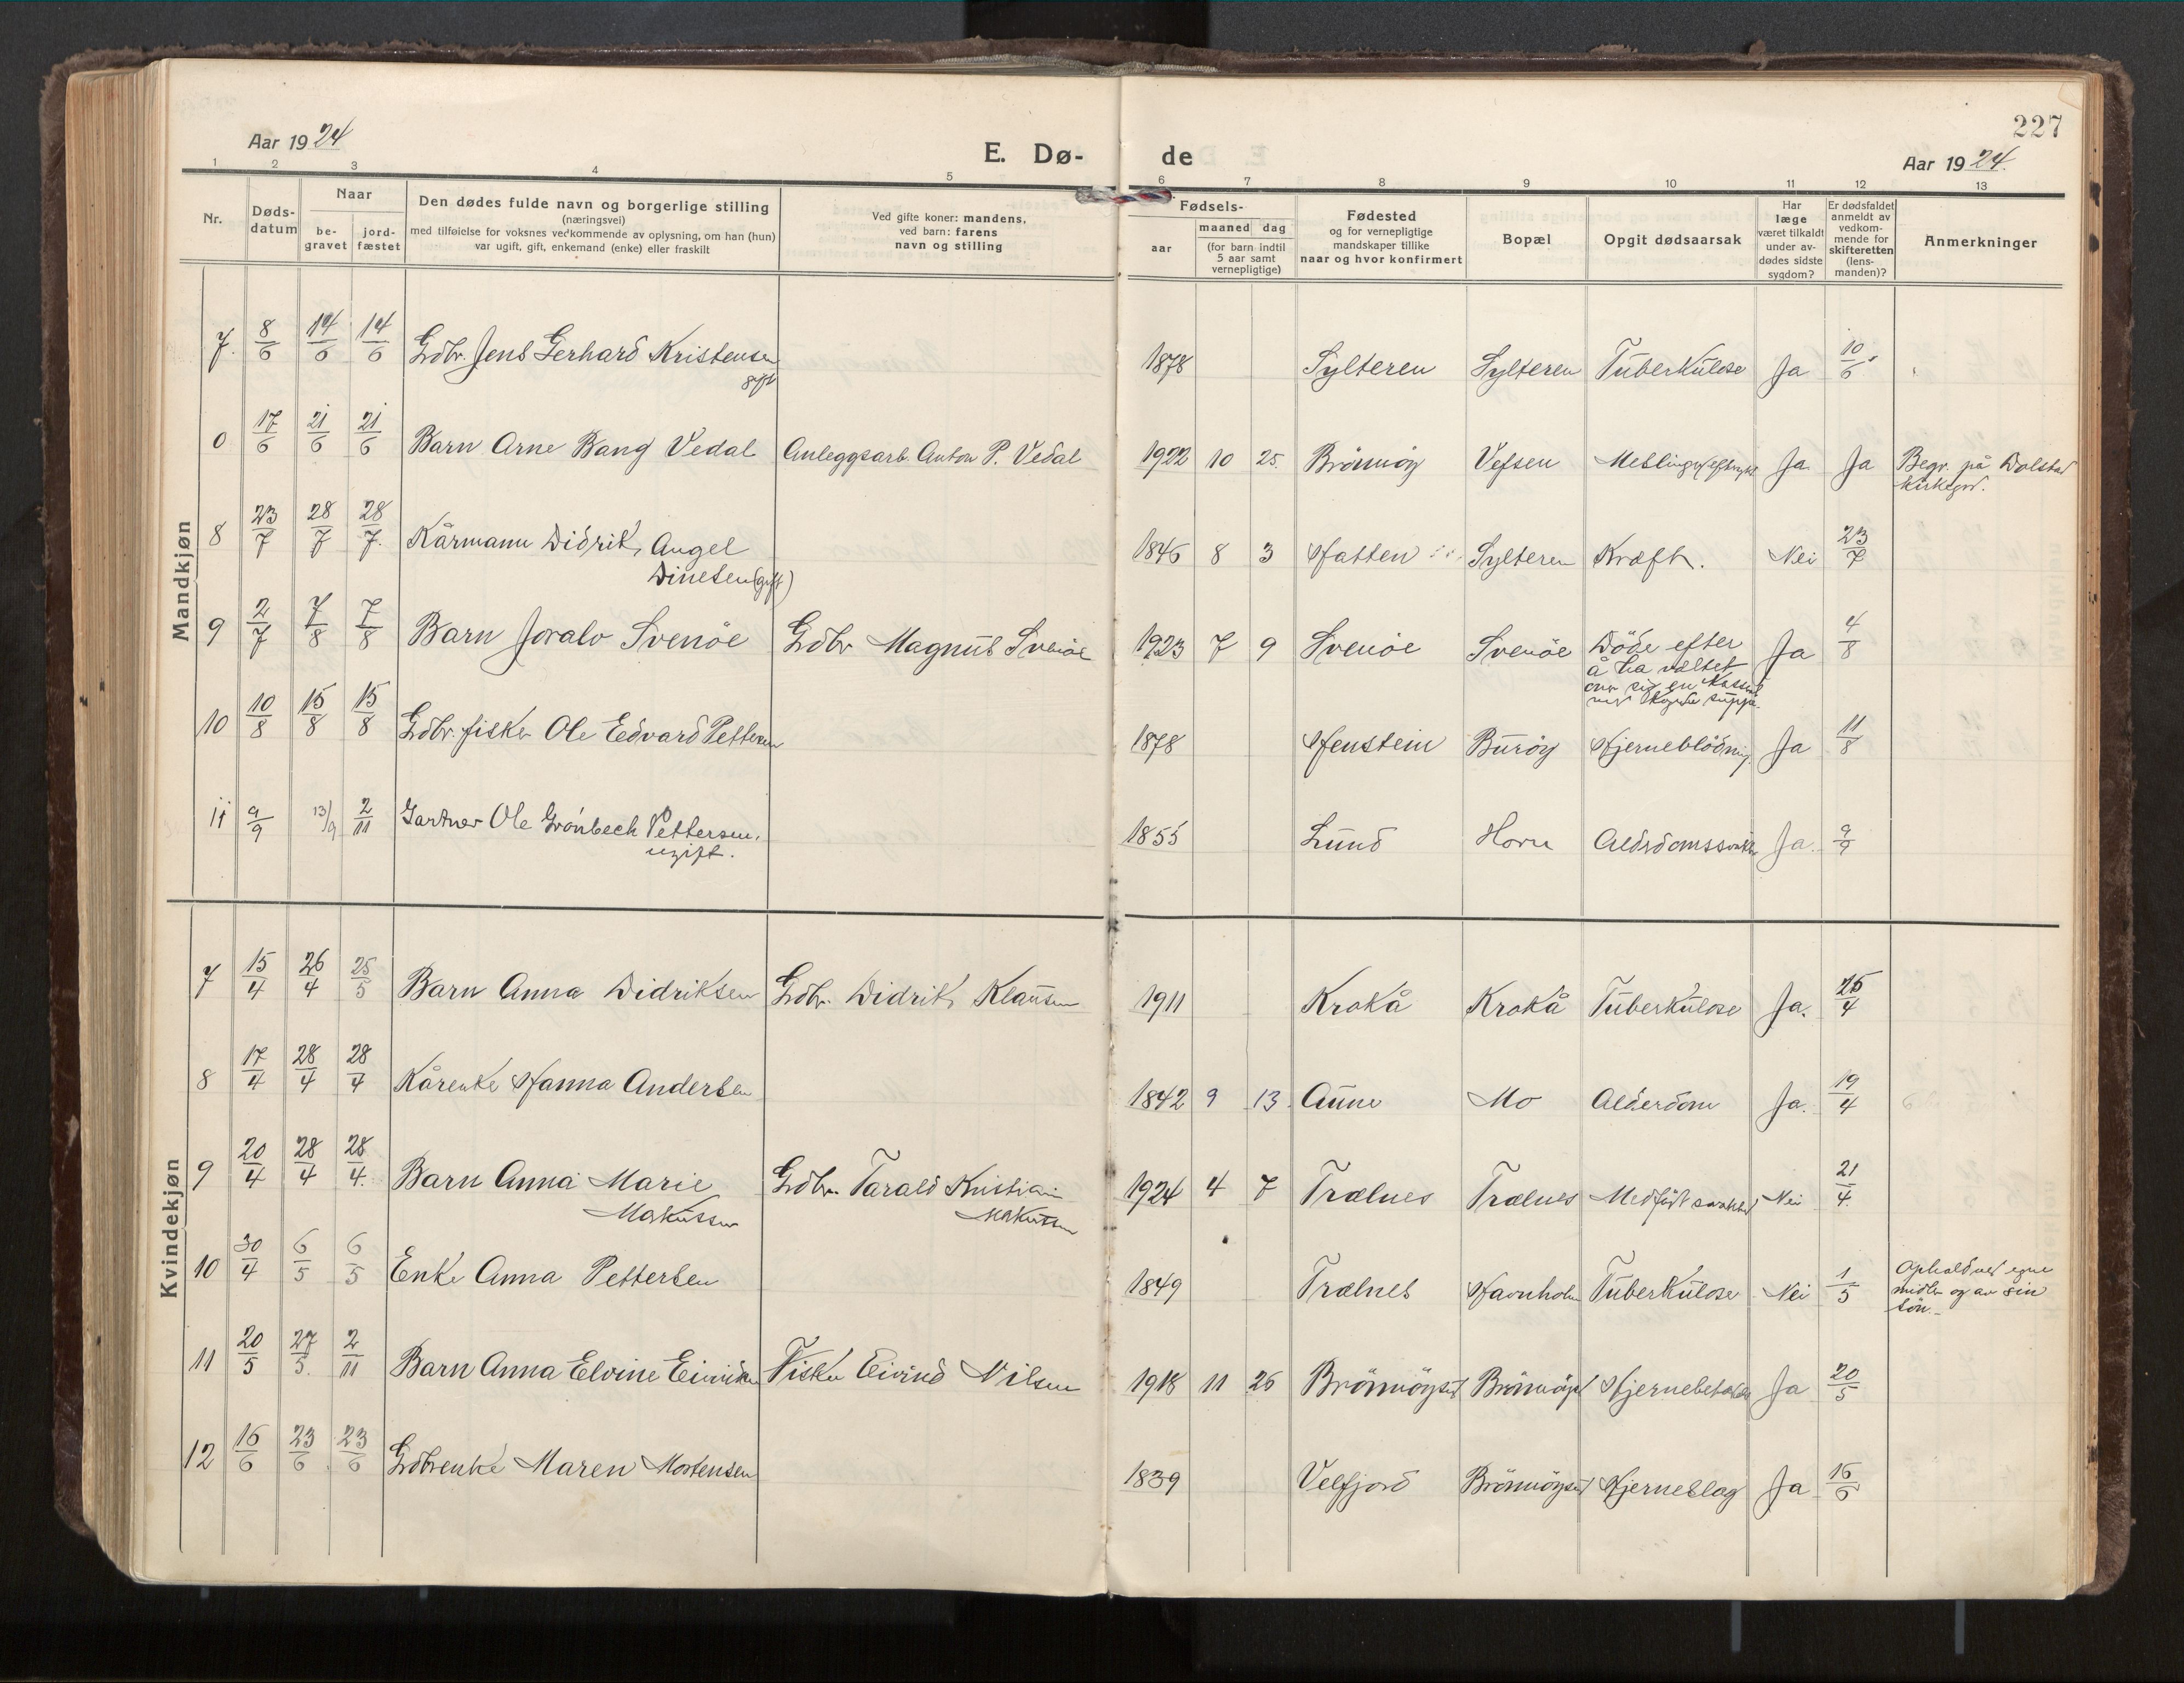 227
Aar 1924
E. Dø- de
Aar 1924.
1 2 3 4 5 6 7 8 9 10 11 12 13
Nr.
Døds-
datum
Naar
be-
gravet
jord-
fæstet
Den dødes fulde navn og borgerlige stilling
(næringsvei)
med tilføielse for voksnes vedkommende av oplysning, om han (hun)
var ugift, gift, enkemand (enke) eller fraskilt
Ved gifte koner: mandens,
ved barn: farens
navn og stilling
Fødsels-
aar
maaned dag
(for barn indtil
5 aar samt
vernepligtige)
Fødested
og for vernepligtige
mandskaper tillike
naar og hvor konfirmert
Bopæl
Opgit dødsaarsak
Har
læge
været tilkaldt
under av-
dødes sidste
sygdom?
Er dødsfaldet
anmeldt av
vedkom-
mende for
skifteretten
(lens-
manden)?
Anmerkninger
Mandkjøn
7. 8/6 14/6 14/6 Gdbr. Jens Gerhard Kristensen 1878 Sylteren Sylteren Tuberkulose Ja 10/6
gift
0 17/6 21/6 21/6 Barn Arne Bang Vedal Anleggsarb. Anton P. Vedal 1922 10 25. Brönnöy Vefsen Ja. Ja Begr. på Dolstad
kirkegrd.
8 23/7 28/7 28/7. Kårmann Didrik Angel 1846 8 3 Hatten Sylteren Kræft. Nei 23/7
Dinesen (gift)
9 2/7 7/8 7/8 Barn Joralv Svenöe Gdbr Magnus Svenöe 1923 7 9 Svenöe Svenöe Döde efter Ja 4/8
å ha væltet
over sig en
med suppe.
10 10/8 15/8 15/8 Gdbr. fisker Ole Edvard Pettersen 1878 Henstein Buröy Hjerneblödning Ja 11/8
11 9/9 13/9 2/11 Gartner Ole Grönbech Pettersen. 1855 Lund Horn Ja. 9/9
ugift.
Kvindekjøn
7 15/4 26/4 25/5 Barn Anna Didriksen Gdbr. Didrik Klausen 1911 Krokå Krokå Tuberkulose Ja. 25/4
8 17/4 28/4 28/4 Kårenke Hanna Andersen 1842 9 13. Aune Mo Alderdom Ja. 19/4
9 20/4 28/4 28/4. Barn Anna Marie Gdbr. Tarald Kristian 1924 4 7 Trælnes Trælnes Medfödt svakhed Nei 21/4.
Markussen Markussen
10 30/4 6/5 6/5 Enke Anna Pettersen 1849 Trælnes Havnholm Tuberkulose Nei 1/5 Ophold ved egne
midler og av sin
sön.
11 20/5 27/5. 2/11 Barn Anna Elvine Eivindsen Fisker Eivind Nilsen 1918 11 26 Brönnöysund Brönnöysund Ja 20/5
12 16/6 23/6 23/6 Gdbrenke Maren Mortensen 1839 Velfjord Brönnöysund Hjerneslag Ja 16/6